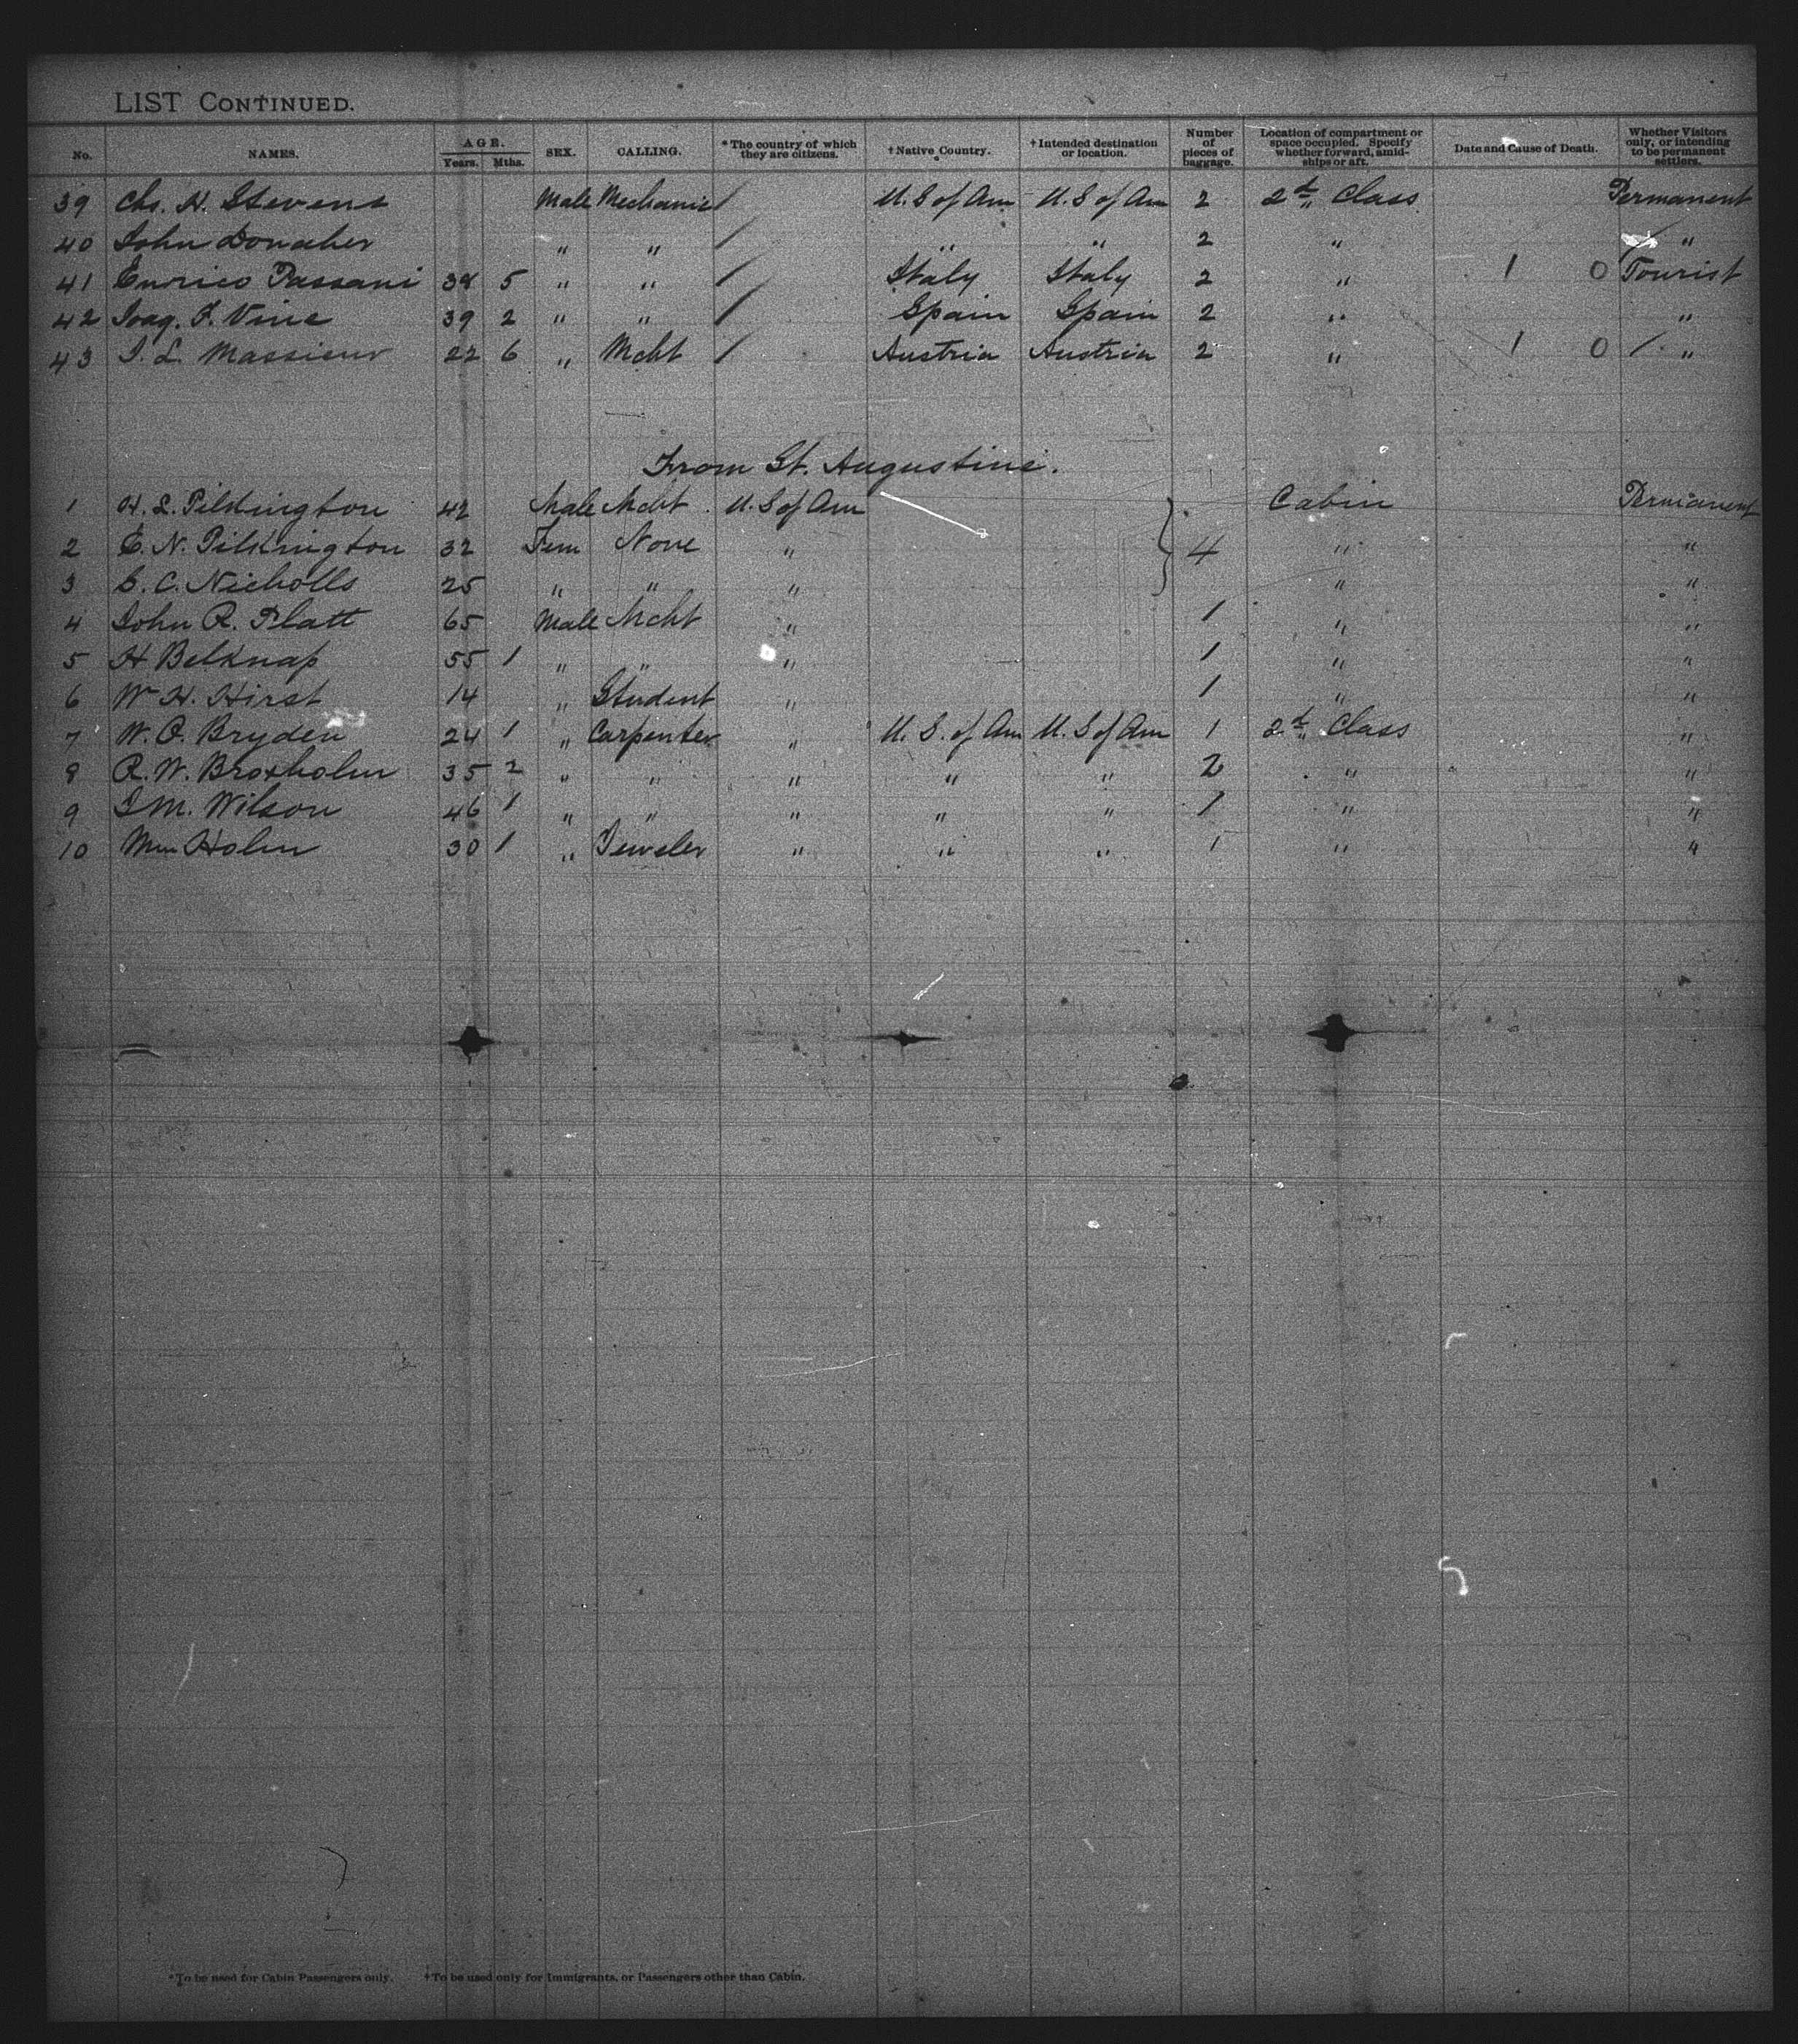 LIST CONTINUED.
No. NAMES. AGE. Years. Mths. SEX. CALLING. *The country of which they are citizens. †Native Country. †Intended destination or location. Number of pieces of baggage. Location of compartment or space occupied. Specify whether forward, amidships or aft. Date and Cause of Death. Whether Visitors only, or intending to be permanent settlers.
39 Chs. H. Stevens Male Mechanic / U.S of Am U.S of Am 2 2d Class Permanent
40 John Donaher " " / " " 2 " "
41 Enrico Passani 38 5 " " / Italy Italy 2 " 1 0 Tourist
42 Joaq. F. Vine 39 2 " " / Spain Spain 2 " "
43 J. L. Massieur 22 6 " Mcht / Austria Austria 2 " 1 0 / "
From St. Augustine.
1 H. L. Pilkington 42 Male Mcht. U.S of Am Cabin Permanent
2 E. N. Pilkington 32 Fem None " } 4 " "
3 C. C. Nicholls 25 " " " " "
4 John R. Platt 65 Male Mcht " 1 " "
5 H Belknap 55 1 " " " 1 " "
6 Wm H. Hirst 14 " Student " 1 " "
7 W. O. Bryden 24 1 " Carpenter " U.S. of Am U.S of Am 1 2d Class "
8 R. W. Broxholm 35 2 " " " " " 2 " "
9 J M. Wilson 46 1 " " " " " 1 " "
10 Wm Holm 30 1 " Jeweler " " " 1 " "
*To be used for Cabin Passengers only. †To be used only for Immigrants, or Passengers other than Cabin.